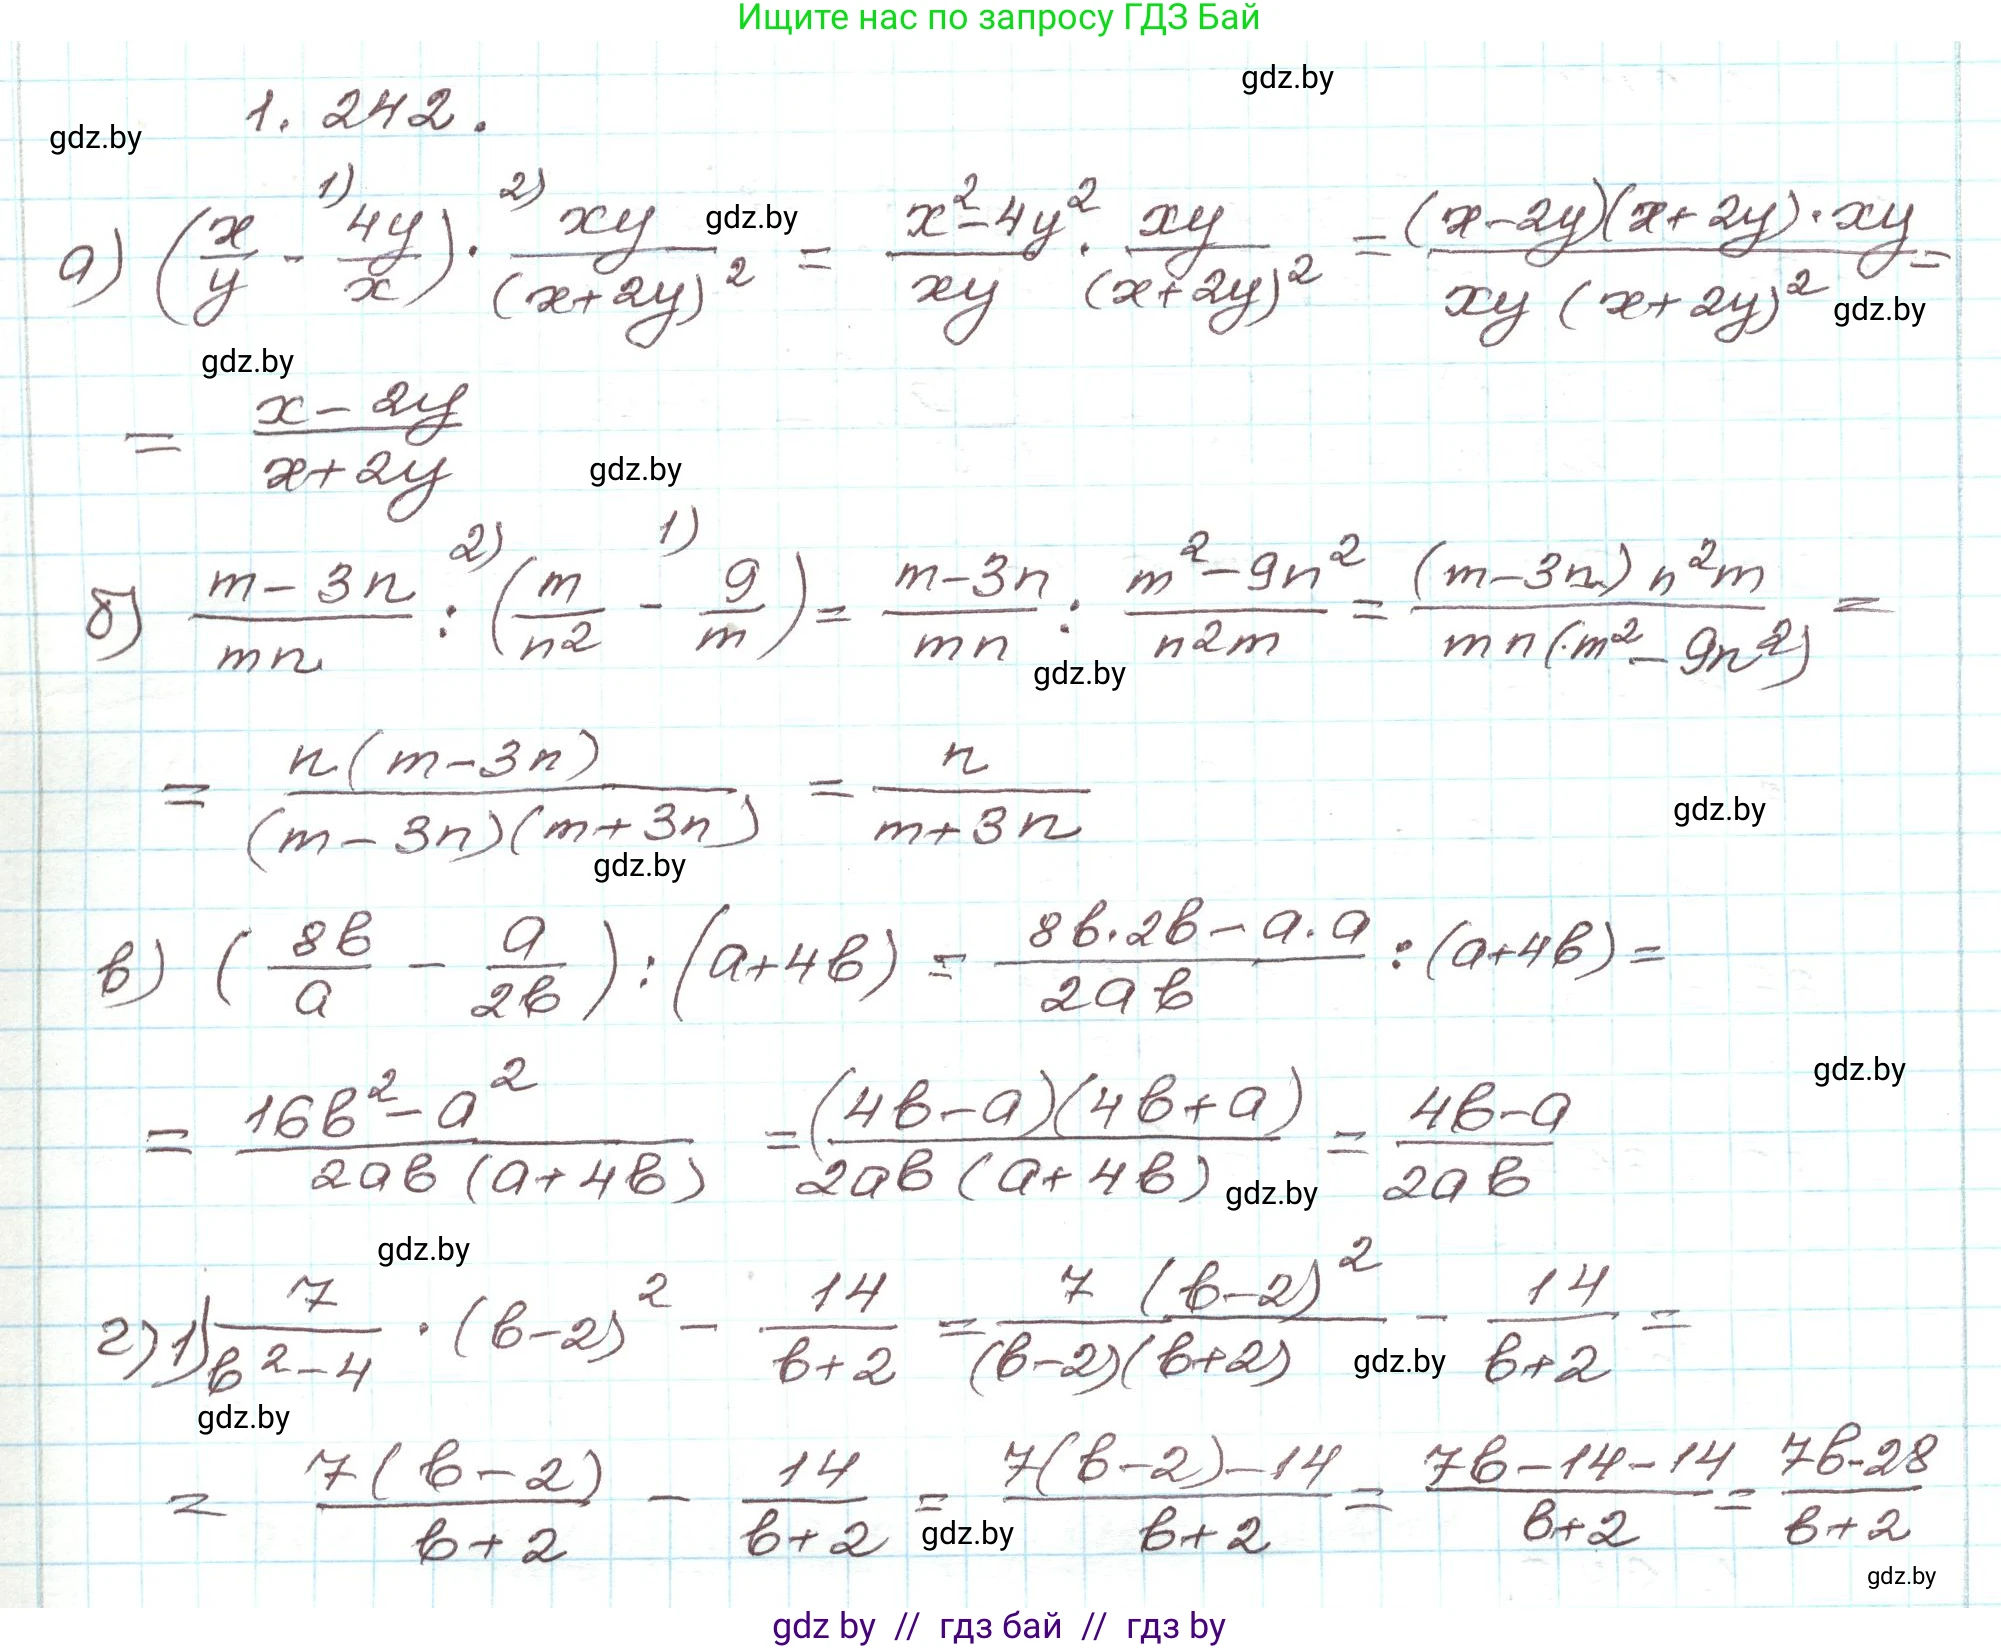 Ищите нас по запросу ГДЗ Бай
gdz.by
1. 242.
gdz.by
а) (x/y - 1) 4y/x) · 2) xy/(x+2y)² gdz.by = (x²-4y²)/(xy) · xy/(x+2y)² = ((x-2y)(x+2y)·xy)/(xy(x+2y)²) =
gdz.by
gdz.by
= (x-2y)/(x+2y)
gdz.by
б) (m-3n)/(mn) 2) : (m/n² 1) - 9/m) = (m-3n)/(mn) : (m²-9n²)/(n²m) = ((m-3n)n²m)/(mn(m²-9n²)) =
gdz.by
= (n(m-3n))/((m-3n)(m+3n)) = n/(m+3n)
gdz.by
gdz.by
в) (8b/a - a/2b) : (a+4b) = (8b·2b-a·a)/(2ab) : (a+4b) =
gdz.by
= (16b²-a²)/(2ab(a+4b)) = ((4b-a)(4b+a))/(2ab(a+4b)) = (4b-a)/(2ab)
gdz.by
gdz.by
г) 1) 7/(b²-4) · (b-2)² - 14/(b+2) = (7(b-2)²)/((b-2)(b+2)) - 14/(b+2) =
gdz.by
gdz.by
= (7(b-2))/(b+2) - 14/(b+2) = (7(b-2)-14)/(b+2) = (7b-14-14)/(b+2) = (7b-28)/(b+2)
gdz.by
gdz.by
gdz by // гдз бай // гдз by